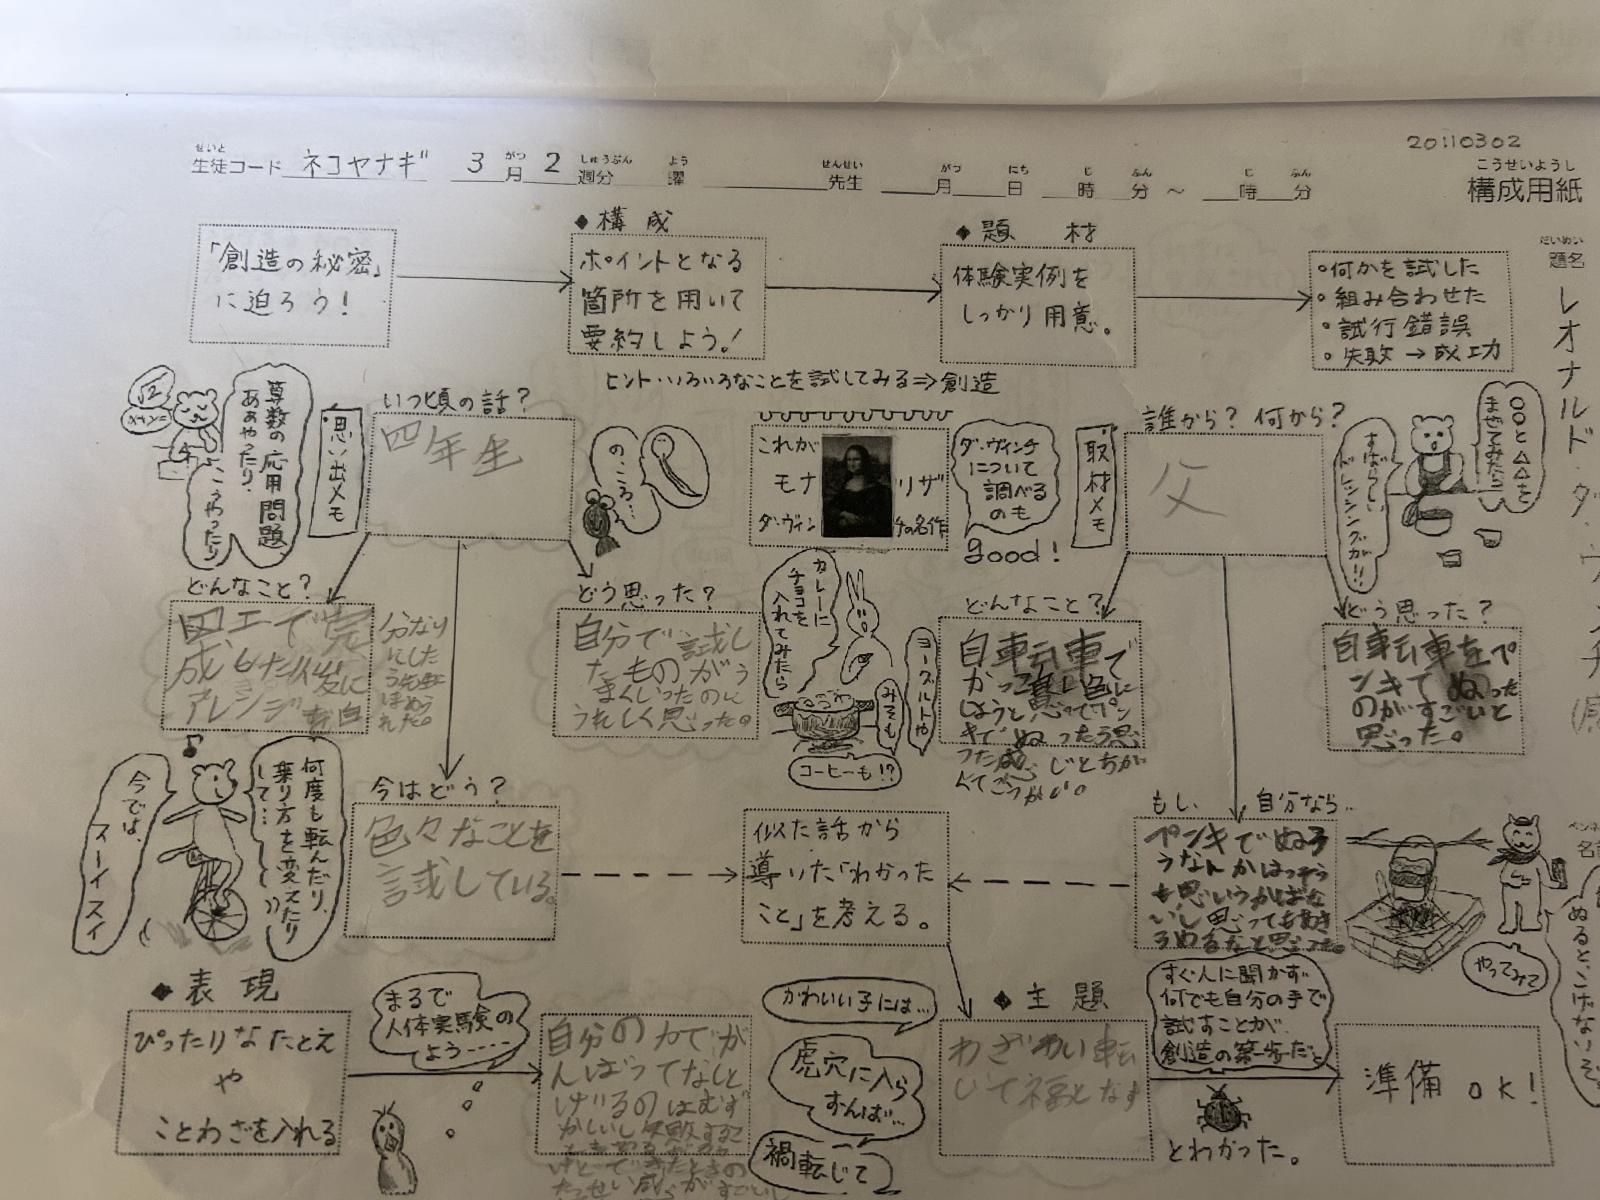 20110302
せいと
生徒コード ネコヤナギ 3月 2週分 曜 先生 月 日 時 分 ～ 時 分
がつ しゅうぶん よう せんせい がつ にち じ ふん じ ふん
こうせいようし
構成用紙
だいめい
題名
レオナルド・ダ・ヴィンチ
「創造の秘密」
に迫ろう!
◆構成
ポイントとなる
箇所を用いて
要約しよう!
◆題材
体験実例を
しっかり用意。
・何かを試した
・組み合わせた
・試行錯誤
・失敗→成功
ヒント・いろいろなことを試してみる⇒創造
算数の応用問題
ああやったり、
こうやったり
思い出メモ
いつ頃の話?
四年生
のころ…
これが
モナリザ
ダ・ヴィンチの名作
ダ・ヴィンチ
について
調べる
のも
good!
取材メモ
誰から? 何から?
父
○○と△△を
まぜてみたら
すばらしい
ドレッシングが!!
どんなこと?
図工で完
成した後に
アレンジ
どう思った?
自分で試し
たものがう
まくいったのに
うれしく思った。
カレーに
チョコを
入れてみたら
ヨーグルトや
みそも
コーヒーも!?
どんなこと?
自転車で
かっこ悪い色に
しようと思ってペン
キでぬったら思
どう思った?
自転車をペ
ンキでぬった
のがすごいと
思った。
何度も転んだり、
乗り方を変えたり
して…
今では、
スーイスイ
今はどう?
色々なことを
試している。
似た話から
導いた「わかった
こと」を考える。
もし、自分なら…
ペンキでぬろ
うなんかはっそう
も思いうかばな
いし思ってもあき
らめるなと思った。
やってみて
ぬるとこげないぞ
◆表現
ぴったりなたとえ
や
ことわざを入れる
まるで
人体実験の
よう……
自分の力でが
んばってなしと
げるのはむず
かしいし失敗するこ
かわいい子には…
虎穴に入ら
ずんば…
禍転じて
◆主題
わざわい転
じて福となす
すぐ人に聞かず
何でも自分の手で
試すことが、
創造の第一歩だ
とわかった。
準備OK!